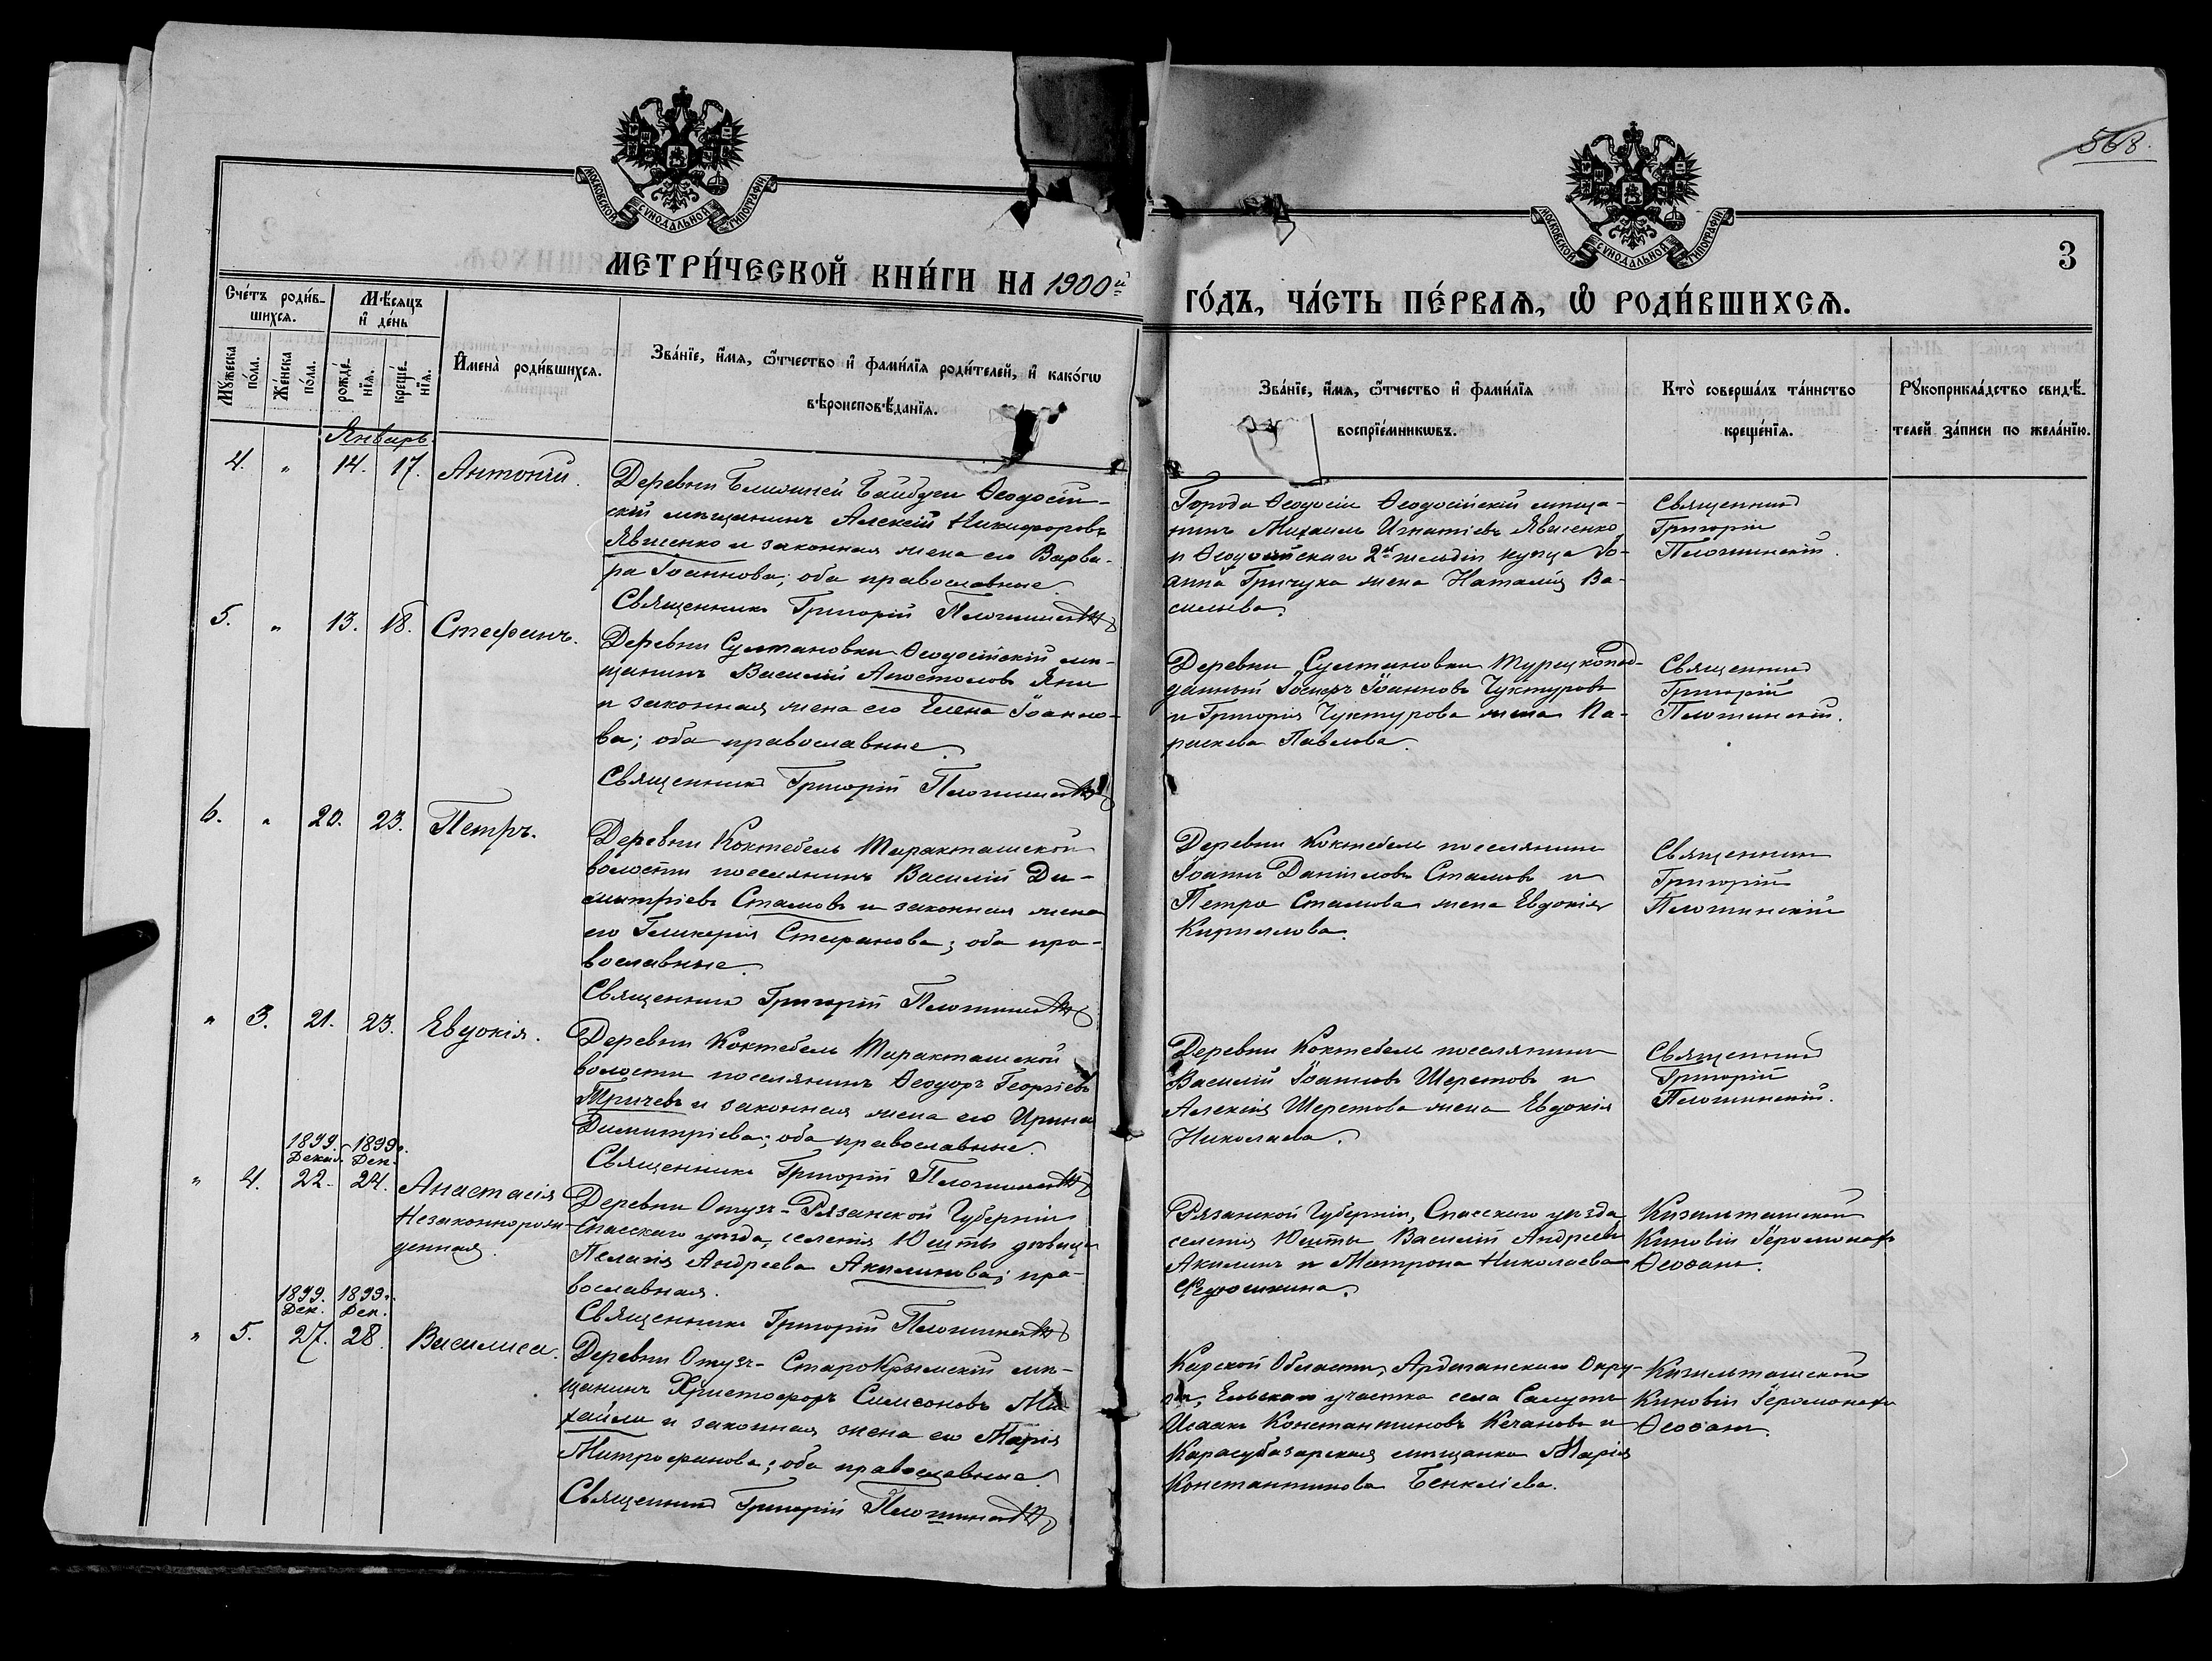 568.
МОСКОВСКОЙ СѴНОДАЛЬНОЙ ТИПОГРАФІИ
МОСКОВСКОЙ СѴНОДАЛЬНОЙ ТИПОГРАФІИ
3
МЕТРИ́ЧЕСКОЙ КНИ́ГИ НА 1900й
ГО́ДЪ, ЧА́СТЬ ПЕ́РВАѦ, Ѡ҆ РОДИ́ВШИХСѦ.
Сче́тъ роди́в-
шихсѧ.
Мꙋ́жеска по́ла.
Же́нска по́ла.
Мѣ́сѧцъ
и҆ де́нь
рожде́-
нїѧ.
креще́-
нїѧ.
И҆мена̀ роди́вшихсѧ.
Зва́нїе, и҆́мѧ, ѻ҆́тчество и҆ фами́лїѧ роди́телей, и҆ како́гѡ
вѣроисповѣ́данїѧ.
Зва́нїе, и҆́мѧ, ѻ҆́тчество и҆ фами́лїѧ
воспрїе́мникѡвъ.
Кто̀ соверша́лъ та́инство
креще́нїѧ.
Рꙋкоприкла́дство свидѣ́-
телей за́писи по жела́нїю.
Январь.
4. " 14. 17. Антоній.
Деревни Ближней Байбуги Ѳеодосій-
скій мѣщанинъ Алексій Никифоровъ
Явленко и законная жена его Варва-
ра Іоаннова; оба православные.
Священникъ Григорій
Города Ѳеодосіи Ѳеодосійскій мѣща-
нинъ Михаилъ Игнатіевъ Явленко
и Ѳеодосійскаго 2й гильдіи купца Іо-
анна Гричука жена Наталія Ва-
сильева.
Священникъ
Григорій
Плотинскій.
5. " 13. 18. Стефанъ.
Деревни Султановки Ѳеодосійскій мѣ-
щанинъ Василій Апостоловъ Яни
и законная жена его Елена Іоанно-
ва; оба православные.
Священникъ Григорій
Деревни Султановки Турецкопод-
данный Іоаннъ Чуктуровъ
и Григорія Чуктурова жена Па-
раскева Павлова.
Священникъ
Григорій
Плотинскій.
6. " 20. 23. Петръ.
Деревни Коктебель Таракташской
волости поселянинъ Василій Ди-
митріевъ Стамовъ и законная жена
его Гликерія Стефанова; оба пра-
вославные.
Священникъ Григорій
Деревни Коктебель поселянинъ
Іоаннъ Даніиловъ Стамовъ и
Петра Стамова жена Евдокія
Кириллова.
Священникъ
Григорій
Плотинскій
" 3. 21. 23. Евдокія.
Деревни Коктебель Таракташской
волости поселянинъ Ѳеодоръ Георгіевъ
Тричевъ и законная жена его Ирина
Димитріева; оба православные.
Священникъ Григорій
Деревни Коктебель поселянинъ
Василій Іоанновъ Шеретовъ и
Алексія Шеретова жена Евдокія
Николаева.
Священникъ
Григорій
Плотинскій.
1899. 1899.
Декаб. Дек.
" 4. 22. 24. Анастасія
Незаконнорож-
денная.
Деревни Отузъ - Рязанской Губерніи
Спасскаго уѣзда, селенія Юшты дѣвица
Пелагія Андреева Акилинова; пра-
вославная.
Священникъ Григорій
Рязанской Губерніи, Спасскаго уѣзда
селенія Юшты Василій Андреевъ
Акилинъ и Матрона Николаева
Ѳедюшкина.
Кизильташской
Киновіи Іеромонахъ
1899. 1899.
Дек. Дек.
" 5. 27. 28. Василиса.
Деревни Отузъ - СтароКрымскій мѣ-
щанинъ Христофоръ Симеоновъ Ми-
хайли и законная жена его Марія
Митрофанова; оба православные.
Священникъ Григорій
Карской Области, Ардаганскаго Окру-
га, участка села
Исаакъ Константиновъ Кечановъ и
Карасубазарская мѣщанка Марія
Константинова
Кизильташской
Киновіи Іеромонахъ